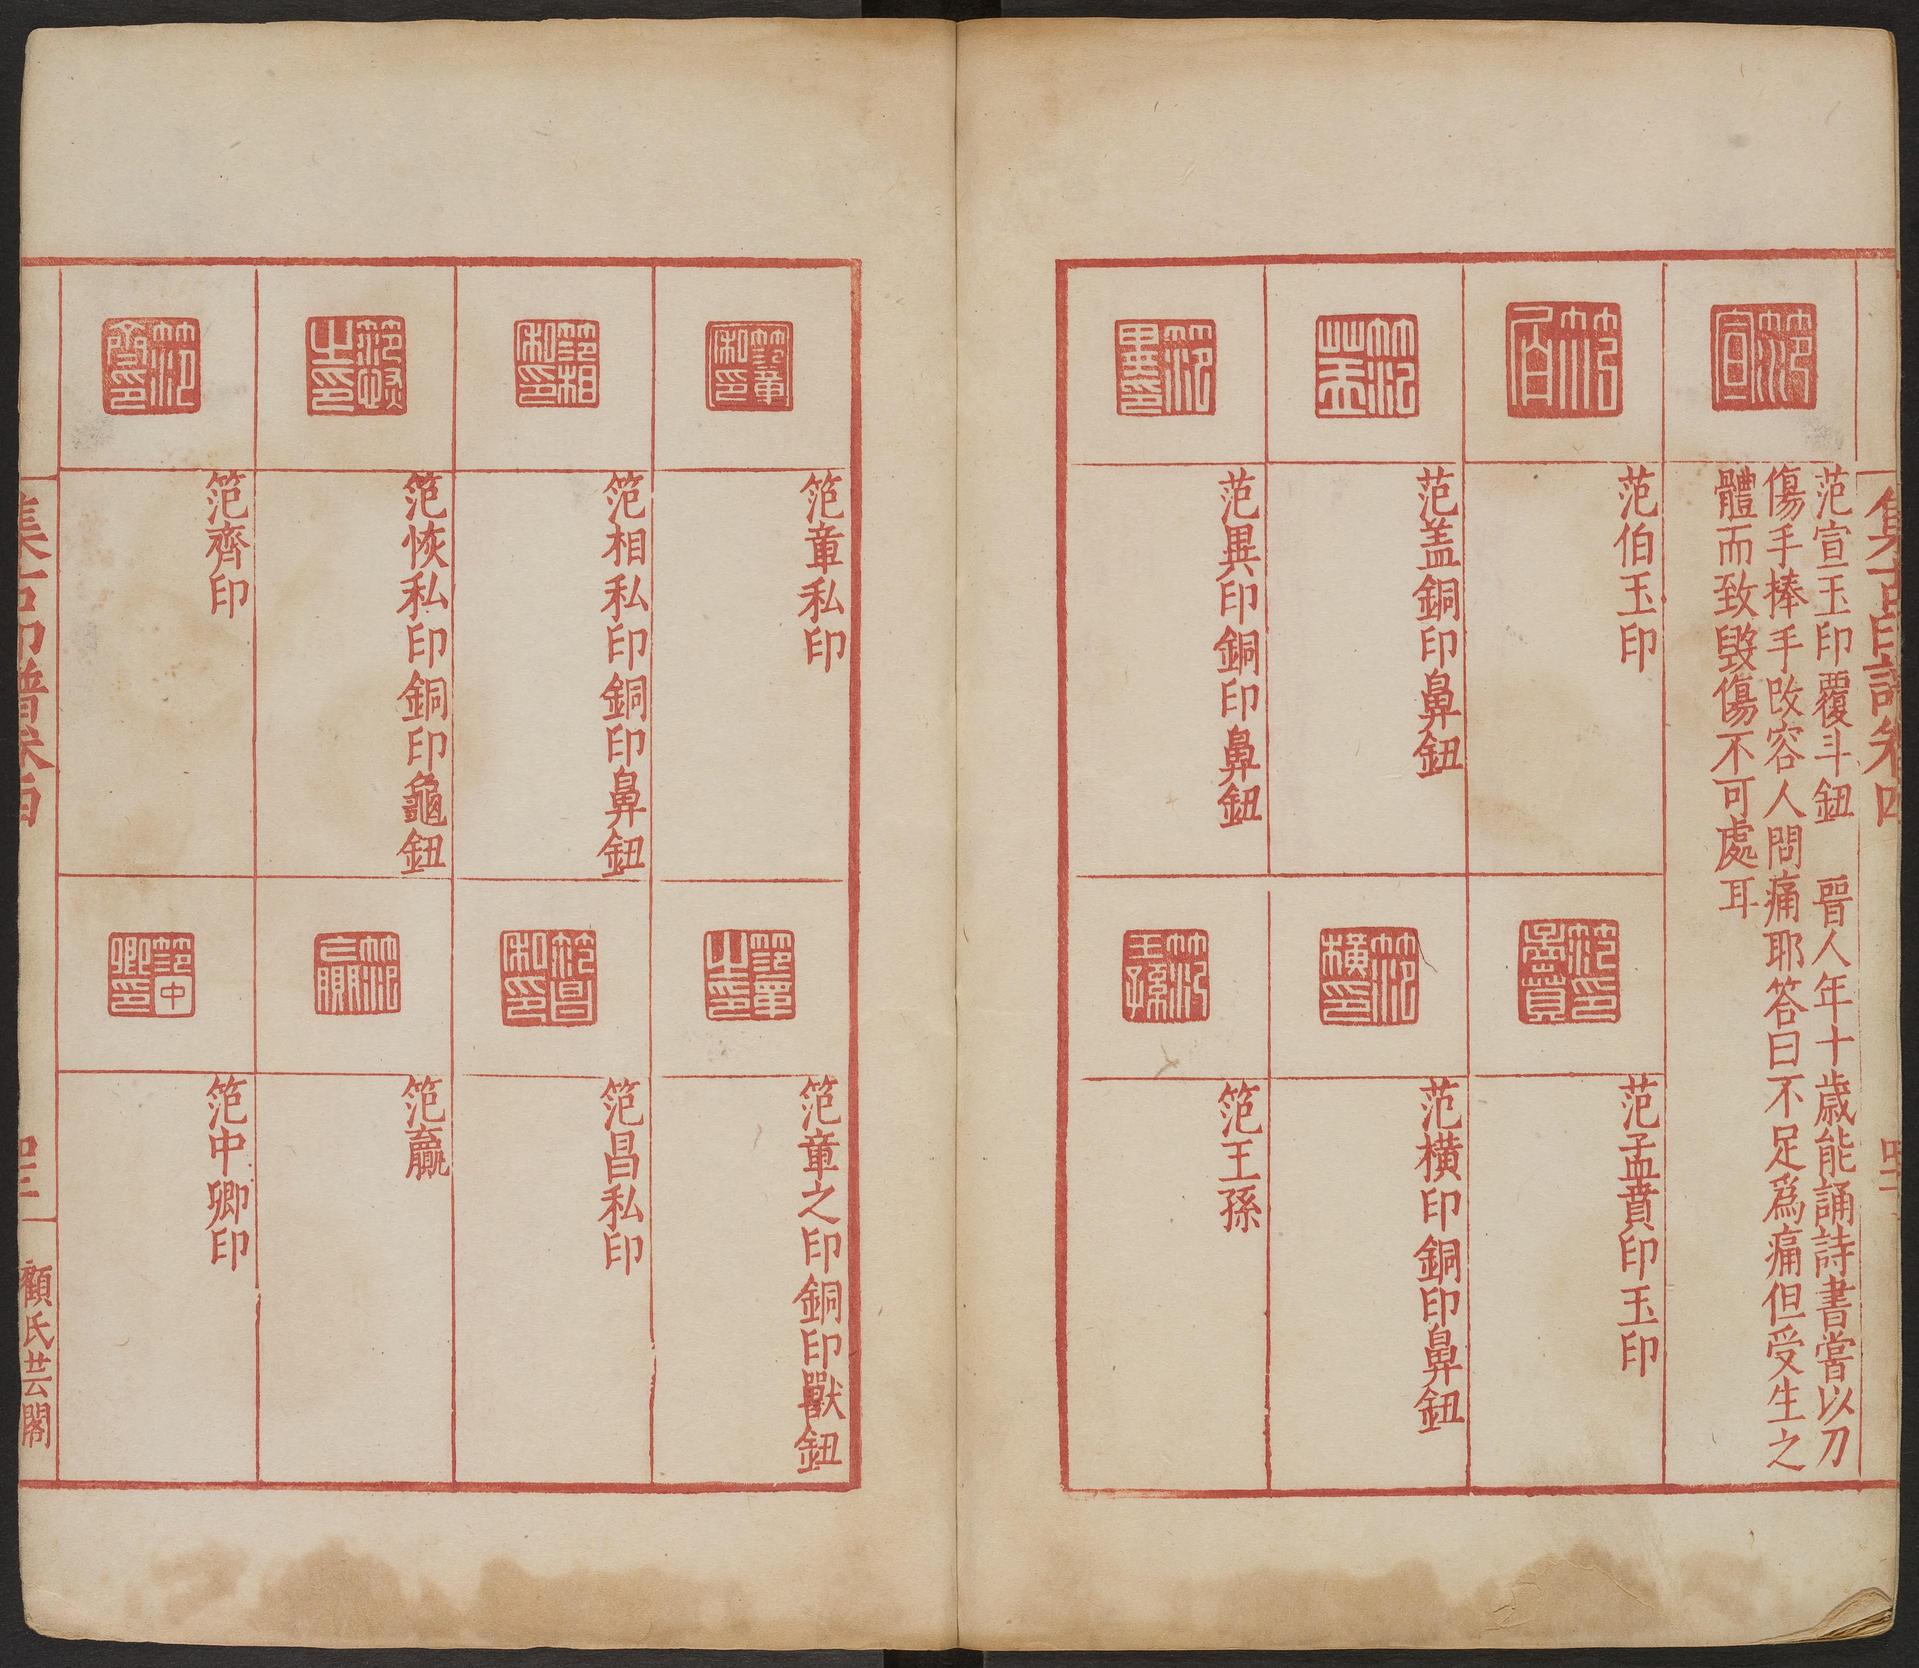 集古印譜卷四
范宣玉印覆斗鈕 晉人年十歲能誦詩書嘗以刀
傷手捧手改容人問痛耶答曰不足爲痛但受生之
體而致毀傷不可處耳
范伯玉印
范孟賁印玉印
范蓋銅印鼻鈕
范橫印銅印鼻鈕
范異印銅印鼻鈕
笵王孫
笵章私印
笵章之印銅印獸鈕
笵相私印銅印鼻鈕
笵昌私印
笵恢私印銅印龜鈕
笵嬴
笵齊印
笵中卿印
集古印譜卷四
顧氏芸閣